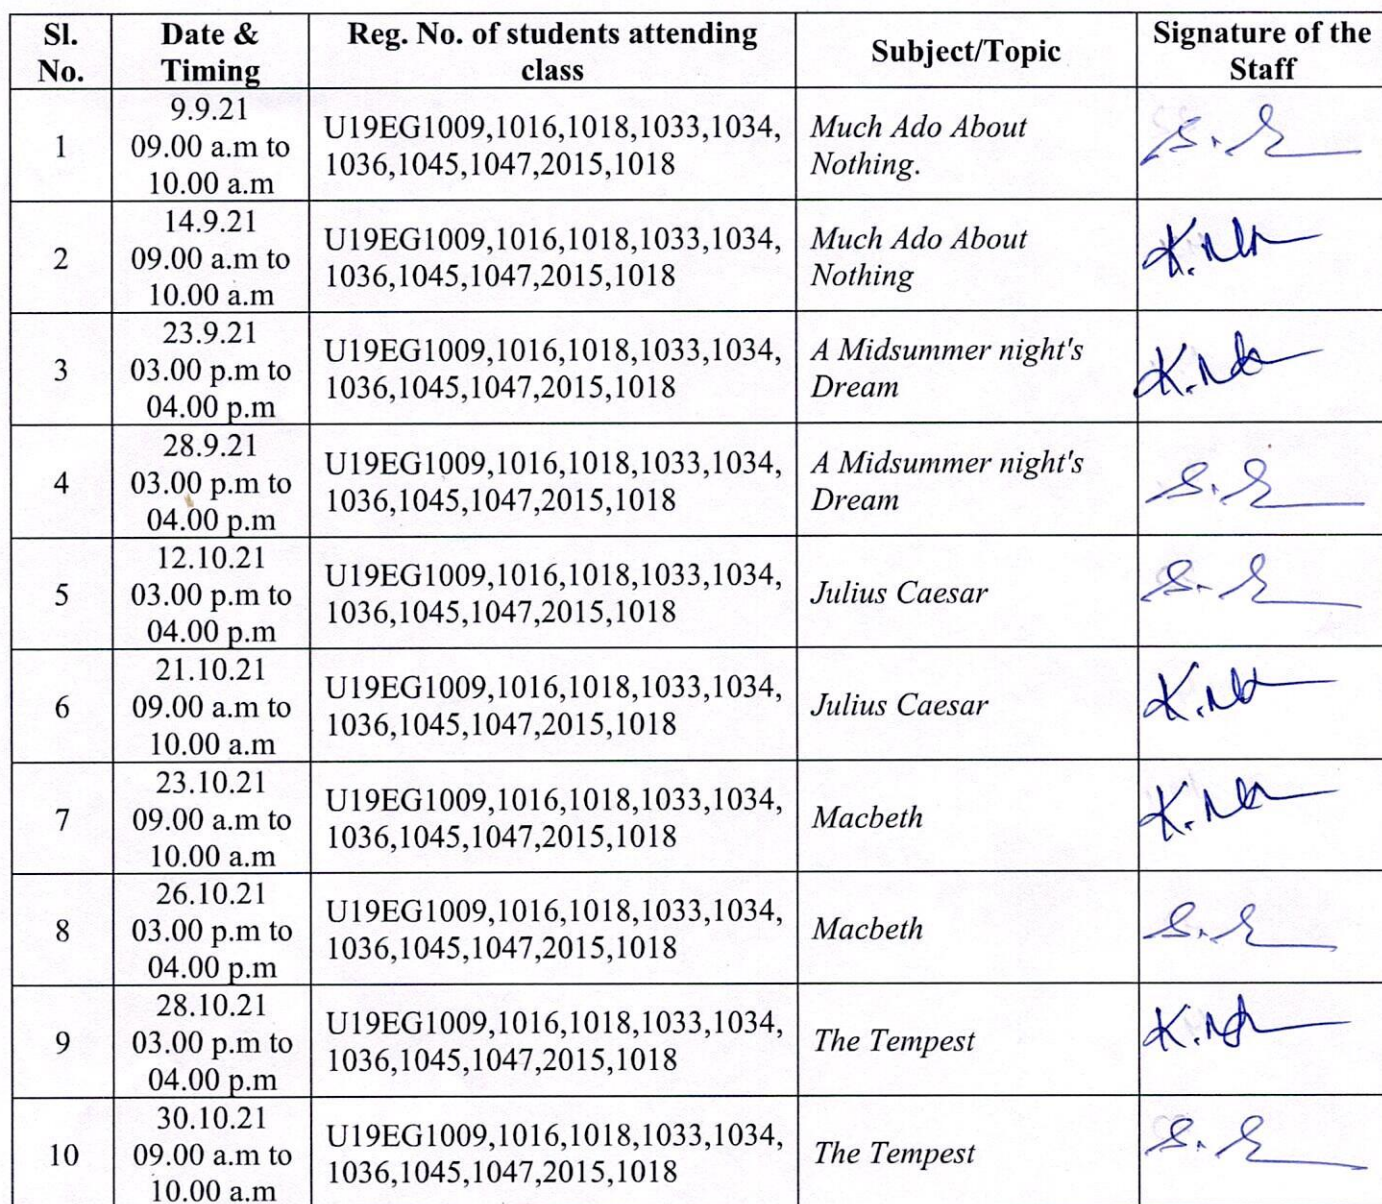 Sl. No.
Date & Timing
Reg. No. of students attending class
Subject/Topic
Signature of the Staff
1
9.9.21
09.00 a.m to
10.00 a.m
U19EG1009,1016,1018,1033,1034,
1036,1045,1047,2015,1018
Much Ado About
Nothing.
2
14.9.21
09.00 a.m to
10.00 a.m
U19EG1009,1016,1018,1033,1034,
1036,1045,1047,2015,1018
Much Ado About
Nothing
3
23.9.21
03.00 p.m to
04.00 p.m
U19EG1009,1016,1018,1033,1034,
1036,1045,1047,2015,1018
A Midsummer night's
Dream
4
28.9.21
03.00 p.m to
04.00 p.m
U19EG1009,1016,1018,1033,1034,
1036,1045,1047,2015,1018
A Midsummer night's
Dream
5
12.10.21
03.00 p.m to
04.00 p.m
U19EG1009,1016,1018,1033,1034,
1036,1045,1047,2015,1018
Julius Caesar
6
21.10.21
09.00 a.m to
10.00 a.m
U19EG1009,1016,1018,1033,1034,
1036,1045,1047,2015,1018
Julius Caesar
7
23.10.21
09.00 a.m to
10.00 a.m
U19EG1009,1016,1018,1033,1034,
1036,1045,1047,2015,1018
Macbeth
8
26.10.21
03.00 p.m to
04.00 p.m
U19EG1009,1016,1018,1033,1034,
1036,1045,1047,2015,1018
Macbeth
9
28.10.21
03.00 p.m to
04.00 p.m
U19EG1009,1016,1018,1033,1034,
1036,1045,1047,2015,1018
The Tempest
10
30.10.21
09.00 a.m to
10.00 a.m
U19EG1009,1016,1018,1033,1034,
1036,1045,1047,2015,1018
The Tempest